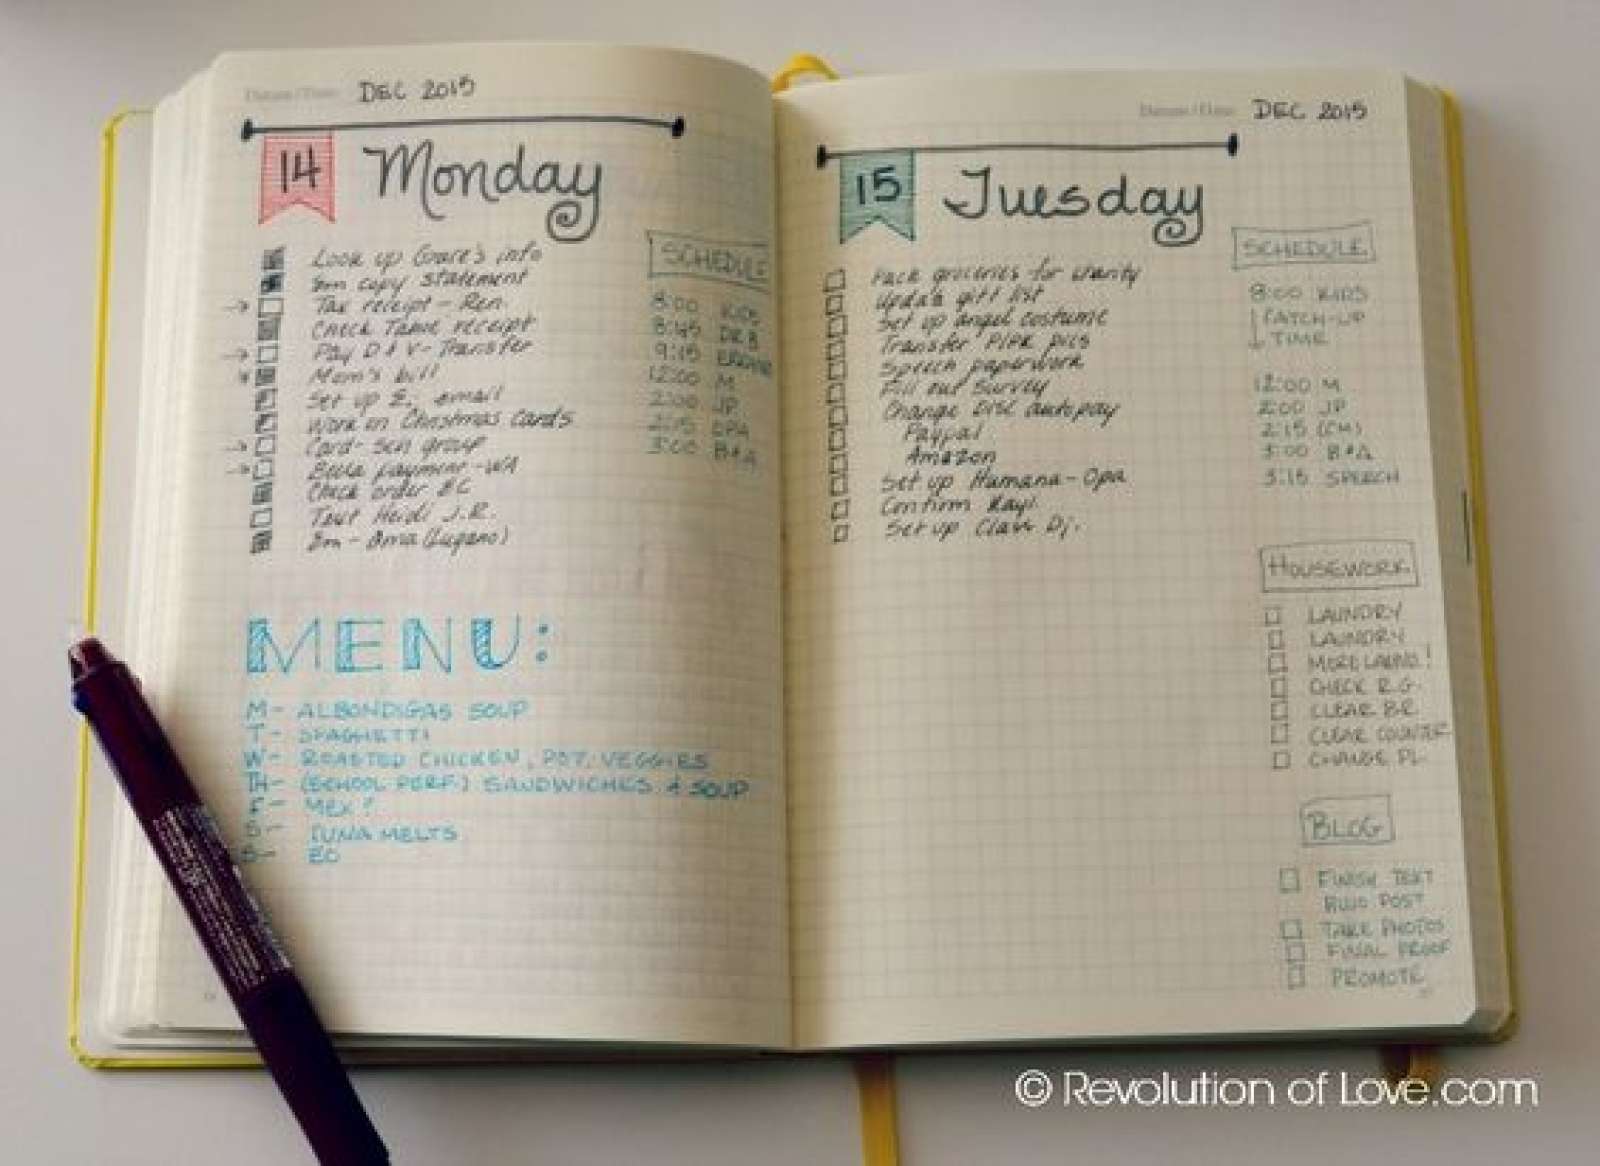 DEC 2015
14 Monday
Look up Grace's info
Em copy statement
Tax receipt - Ren.
Check Tame receipt
Pay D + V - Transfer
Mom's bill
Set up E. email
Work on Christmas Cards
Card - sen group
payment - WA
Check order BC
Text Heidi J.R.
Em - Oma (Lugano)
SCHEDULE
8:00 KIDS
8:45 DR B
9:15
12:00 M
2:00 JP
2:15 OPA
3:00 B+A
MENU:
M- ALBONDIGAS SOUP
T- SPAGHETTI
W- ROASTED CHICKEN, POT, VEGGIES
TH- (SCHOOL PERF.) SANDWICHES + SOUP
F- MEX?
S- TUNA MELTS
S- EO
DEC 2015
15 Tuesday
Pack groceries for charity
Update gift list
Set up angel costume
Transfer pics
Speech paperwork
Fill out survey
Change Disc autopay
Paypal
Amazon
Set up Humana - Opa
Confirm
Set up Class Dj.
SCHEDULE
8:00 KIDS
CATCH-UP
TIME
12:00 M
2:00 JP
2:15 (CM)
3:00 B+A
3:15 SPEECH
HOUSEWORK
LAUNDRY
LAUNDRY
MORE LAUND!
CHECK R.G.
CLEAR BR
CLEAR COUNTER
CHANGE PL.
BLOG
FINISH TEXT
BUJO POST
TAKE PHOTOS
FINAL PROOF
PROMOTE
© Revolution of Love.com